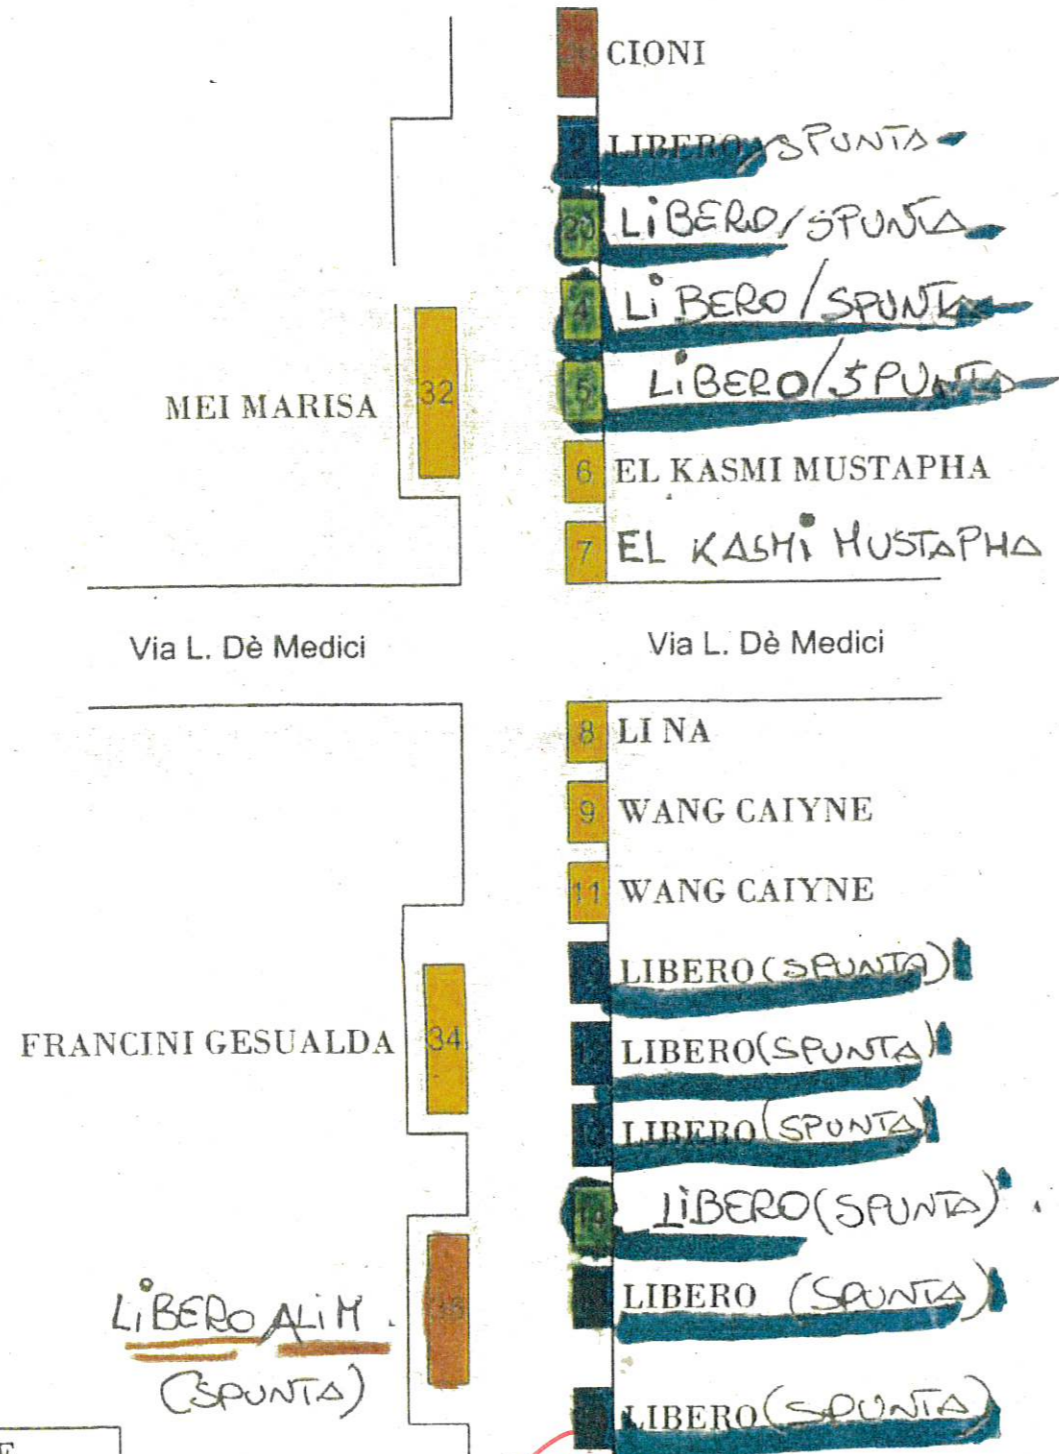 CIONI
2 LIBERO/SPUNTA
20 LiBERO/SPUNTA
4 LiBERO/SPUNTA
5 LiBERO/SPUNTA
MEI MARISA 32
6 EL KASMI MUSTAPHA
7 EL KASMi MUSTAPHA
Via L. Dè Medici Via L. Dè Medici
8 LI NA
9 WANG CAIYNE
11 WANG CAIYNE
LIBERO (SPUNTA)
FRANCINI GESUALDA 34
LIBERO (SPUNTA)
LIBERO (SPUNTA)
14 LiBERO (SPUNTA)
LIBERO (SPUNTA)
LiBERO ALiM.
(SPUNTA)
LIBERO (SPUNTA)